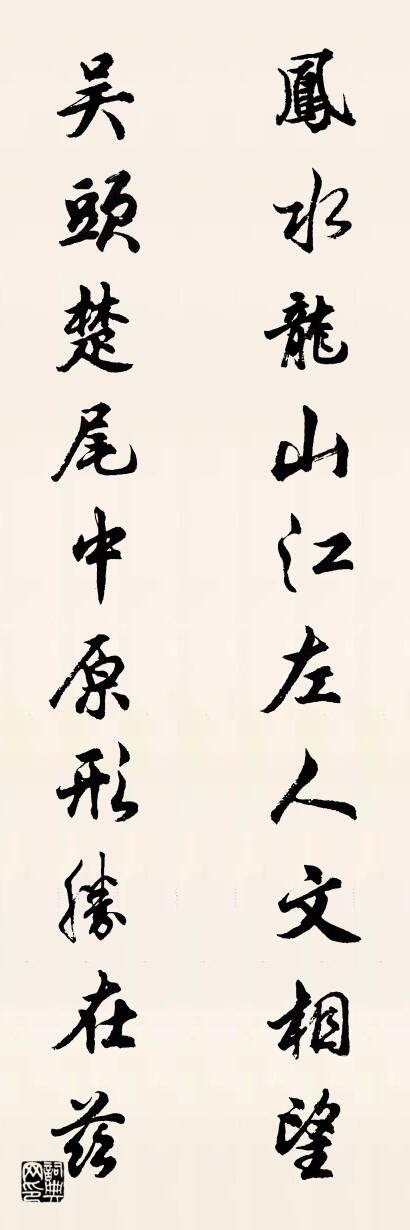 鳳水龍山江左人文相望
吴頭楚尾中原形勝在兹
詞典网印